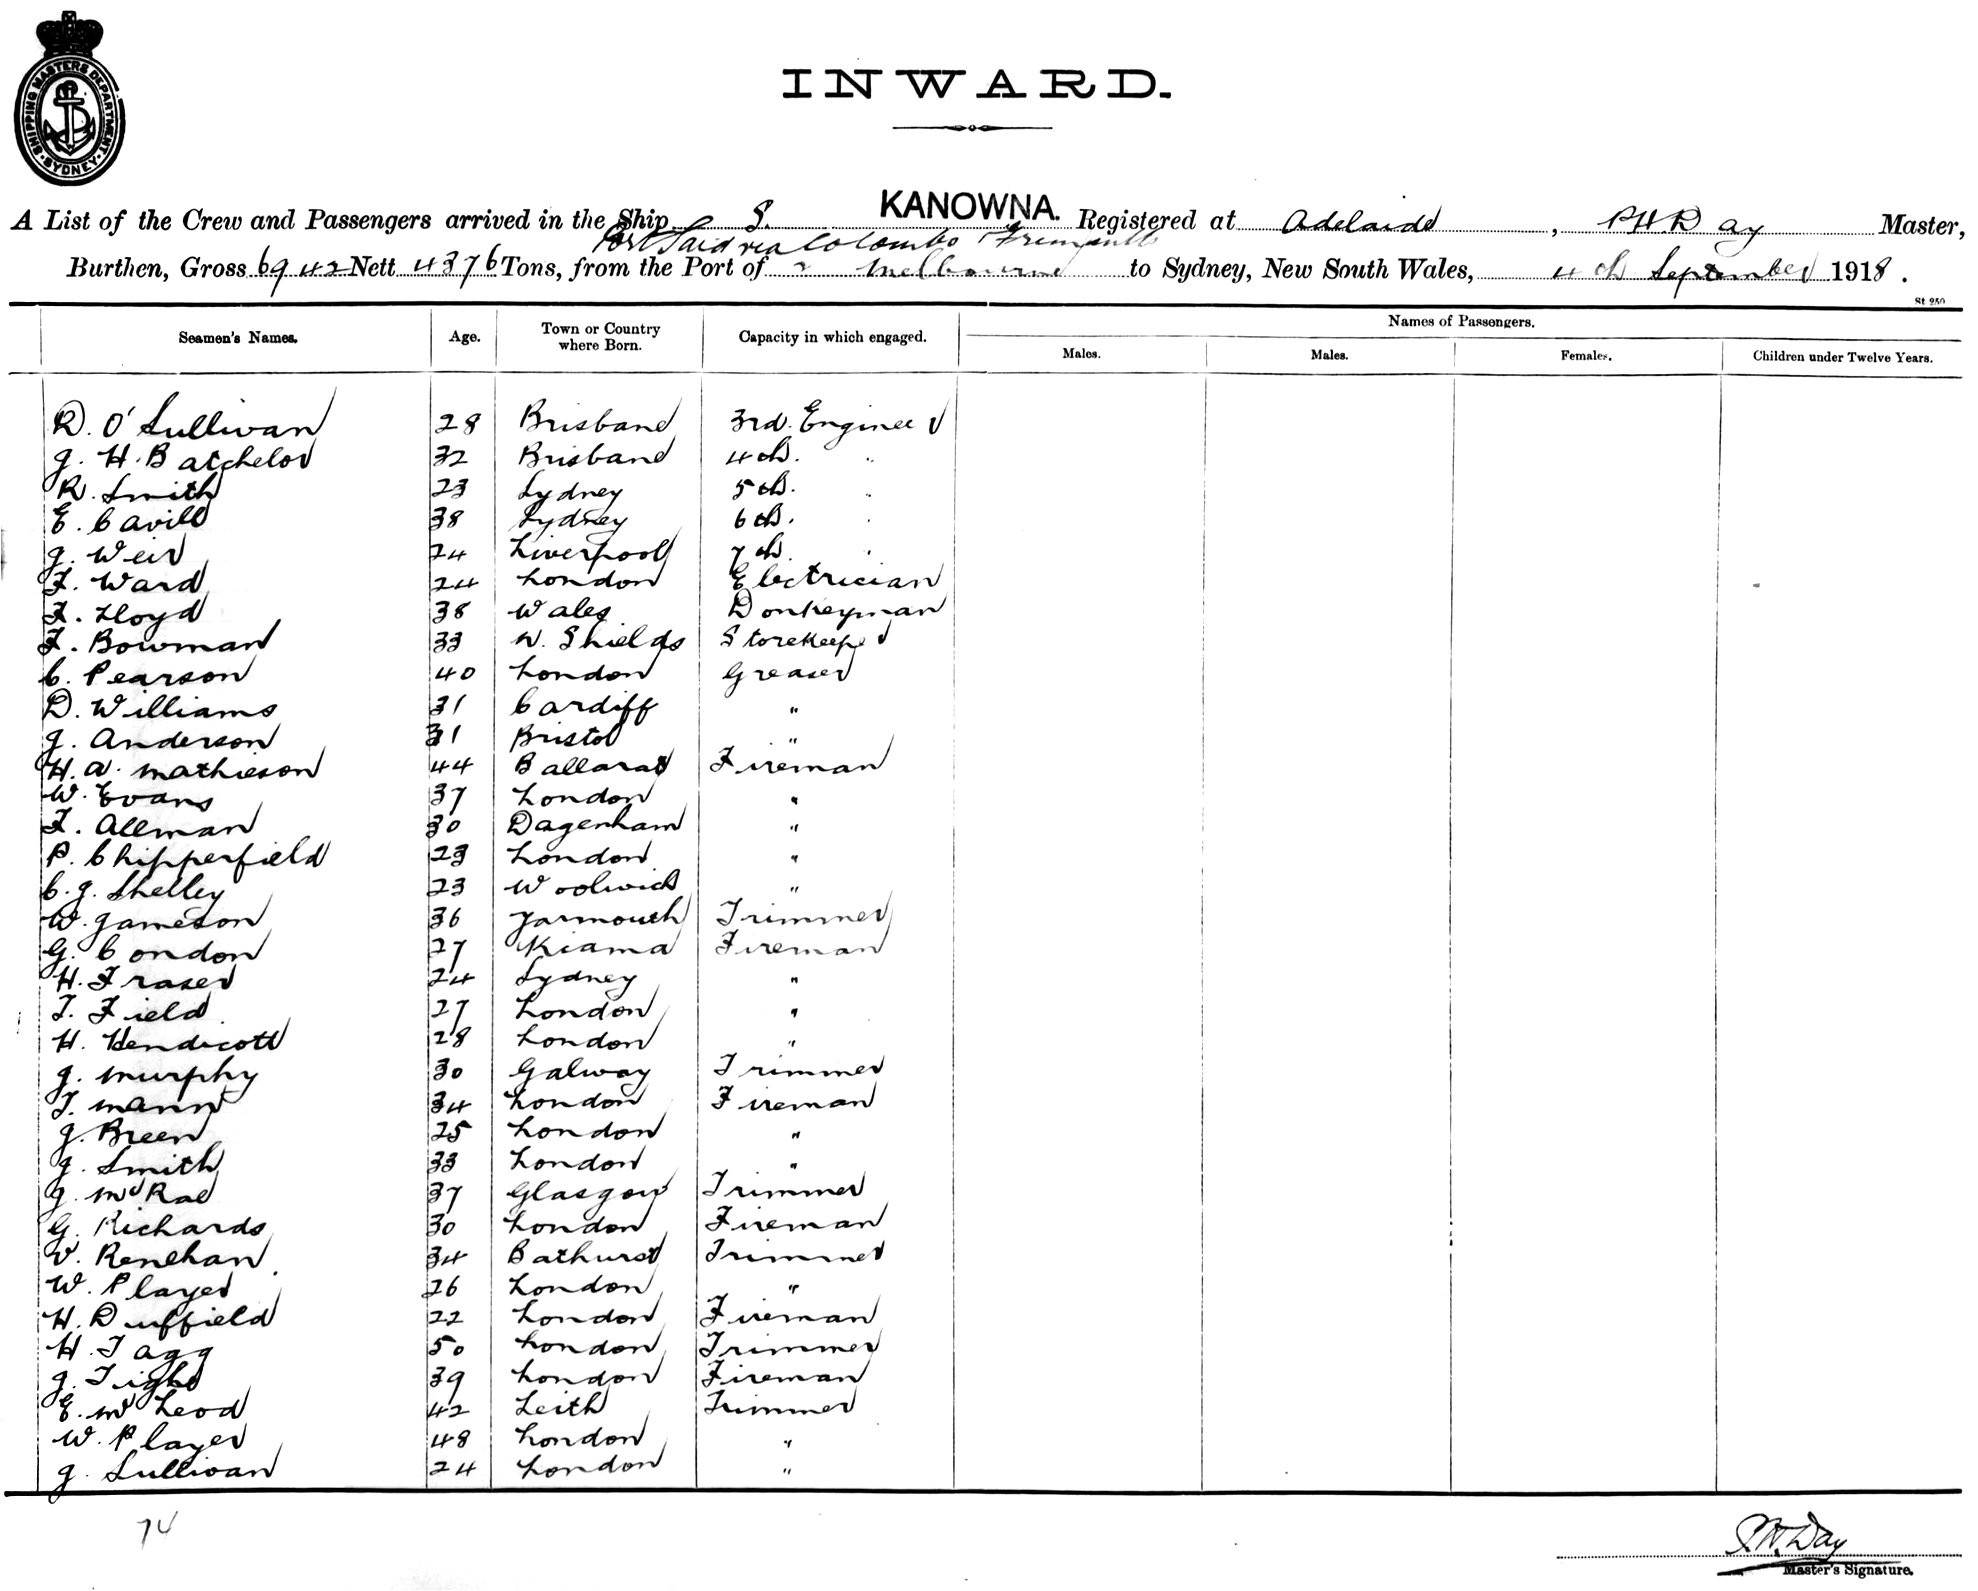 SHIPPING MASTERS DEPARTMENT
SYDNEY
INWARD.
A List of the Crew and Passengers arrived in the Ship S. KANOWNA. Registered at Adelaide, P H Day Master,
Port Said via Colombo Fremantle
Burthen, Gross 6942 Nett 4376 Tons, from the Port of Melbourne to Sydney, New South Wales, 4th September 1918.
St 250
Seamen's Names. Age. Town or Country where Born. Capacity in which engaged. Names of Passengers.
Males. Males. Females. Children under Twelve Years.
D. O'Sullivan 28 Brisbane 3rd. Engineer
J. H. Batchelor 32 Brisbane 4th. "
R. Smith 23 Sydney 5th. "
E. Cavill 38 Sydney 6th. "
J. Weir 24 Liverpool 7th. "
F. Ward 24 London Electrician
F. Lloyd 38 Wales Donkeyman
F. Bowman 33 N. Shields Storekeeper
C. Pearson 40 London Greaser
D. Williams 31 Cardiff "
J. Anderson 31 Bristol "
H. A. Mathieson 44 Ballarat Fireman
W. Evans 37 London "
F. Allman 30 Dagenham "
P. Chipperfield 23 London "
C. J. Shelley 23 Woolwich "
W. Jameson 36 Yarmouth Trimmer
G. Condon 27 Kiama Fireman
H. Fraser 24 Sydney "
T. Field 27 London "
H. Hendicott 28 London "
J. Murphy 30 Galway Trimmer
T. Mann 34 London Fireman
J. Breen 25 London "
J. Smith 33 London "
J. McRae 37 Glasgow Trimmer
G. Richards 30 London Fireman
V. Renehan 34 Bathurst Trimmer
W. Player 26 London "
H. Duffield 22 London Fireman
H. Tagg 50 London Trimmer
J. Tight 39 London Fireman
E. McLeod 42 Leith Trimmer
W. Player 48 London "
J. Sullivan 24 London "
74
P.H. Day
Master's Signature.